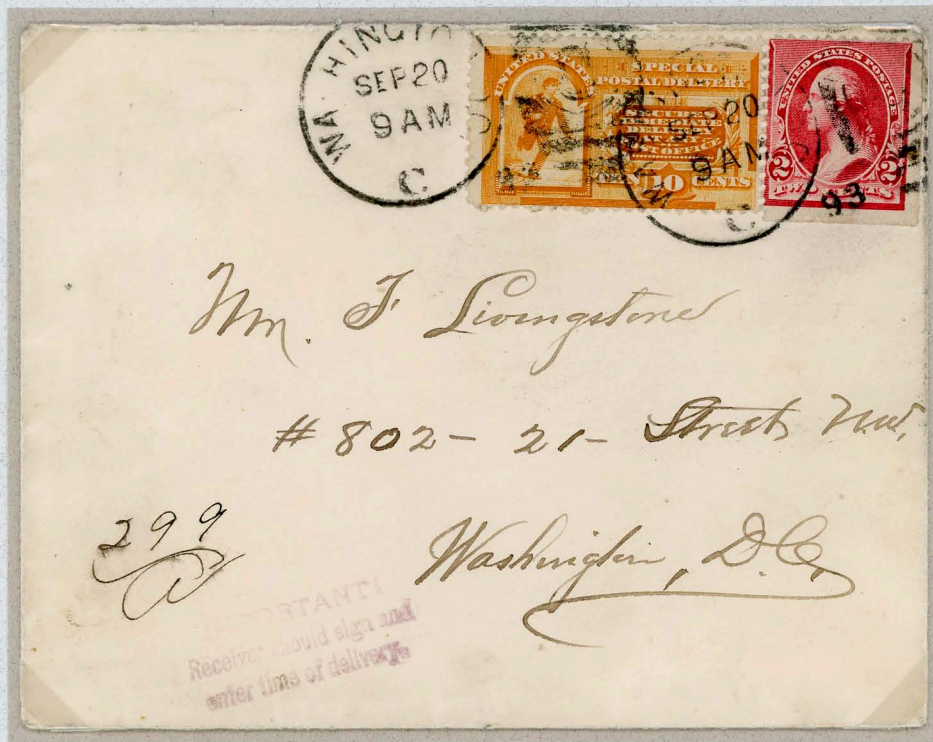 WASHINGTON
SEP 20
9 AM
C
UNITED STATES
SPECIAL
POSTAL DELIVERY
SECURES
IMMEDIATE
DELIVERY
AT ANY
POST OFFICE
10 CENTS
SEP 20
9 AM
C
93
UNITED STATES POSTAGE
2 2
TWO CENTS
Wm. F Livingstone
# 802 - 21 - Street N.W.
Washington, D.C.
299
IMPORTANT!
Receiver should sign and
enter time of delivery.